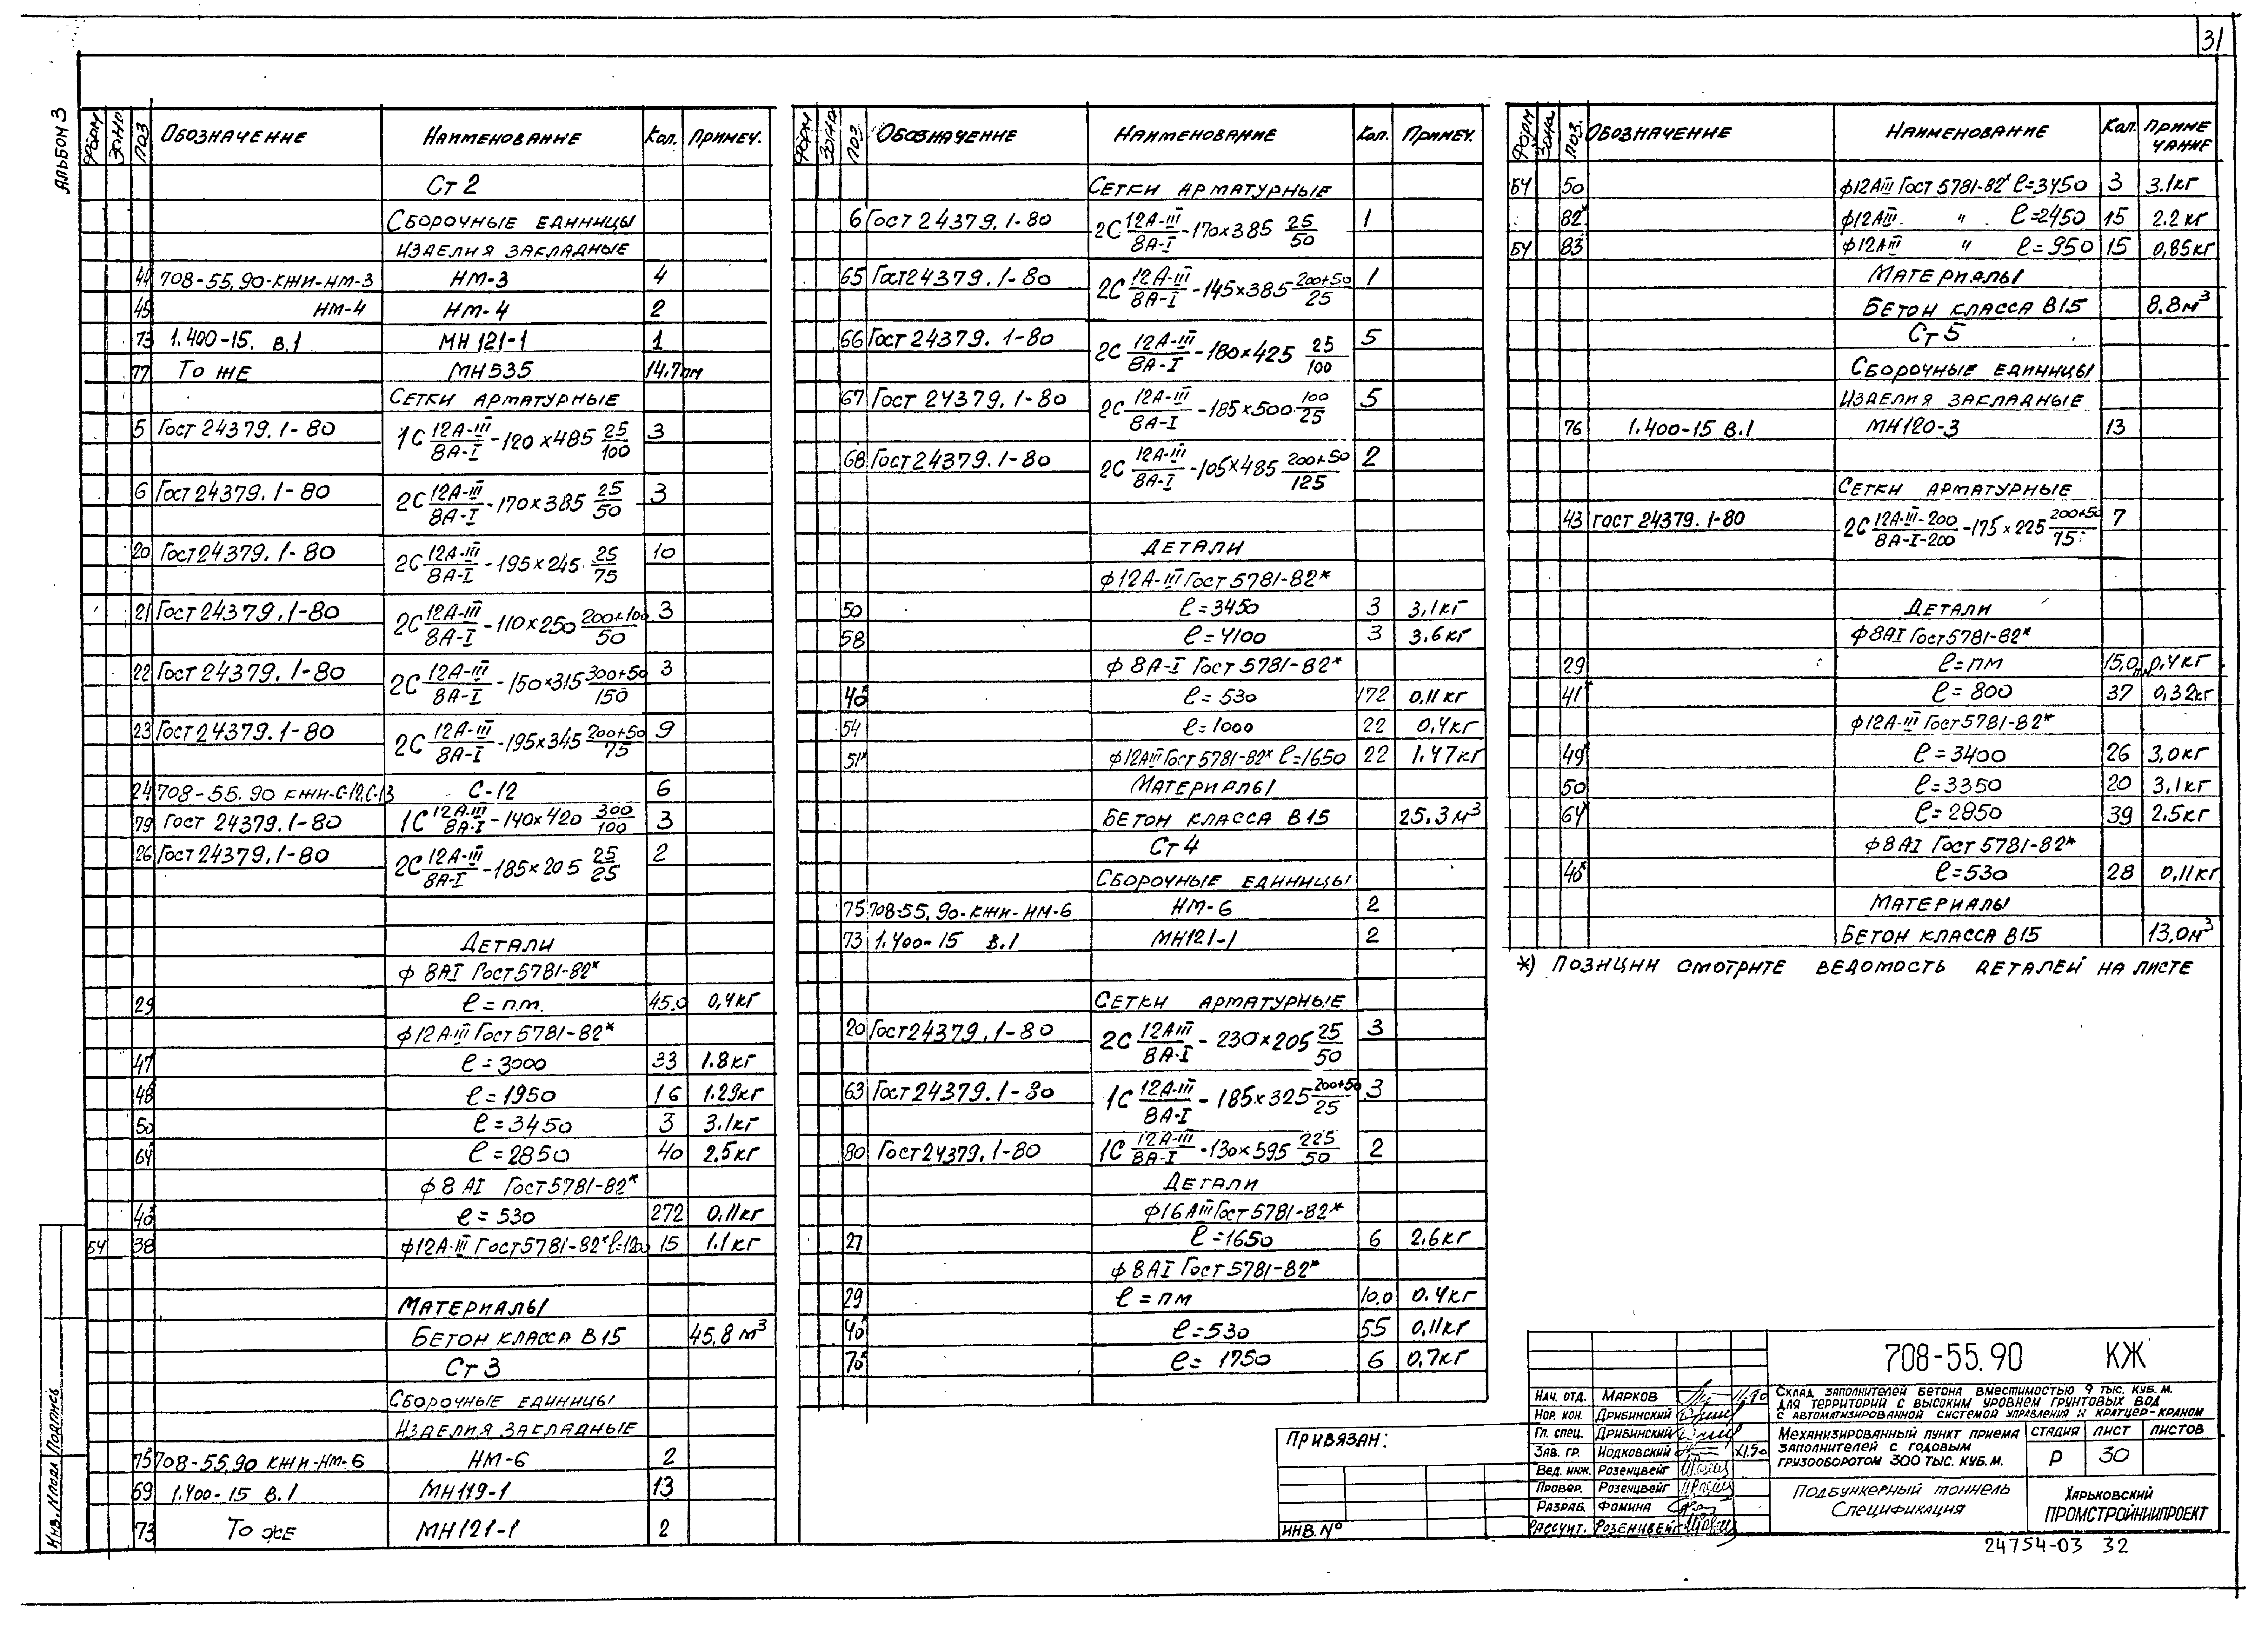 31
Альбом 3
Форм Зона Поз Обозначение Наименование Кол. Примеч.
Ст 2
Сборочные единицы
Изделия закладные
44 708-55.90-КЖИ-НМ-3 НМ-3 4
45 НМ-4 НМ-4 2
73 1.400-15. в.1 МН 121-1 1
77 То же МН535 14.7пм
Сетки арматурные
5 Гост 24379.1-80 1С 12А-III/8А-I -120×485 25/100 3
6 Гост 24379.1-80 2С 12А-III/8А-I -170×385 25/50 3
20 Гост 24379.1-80 2С 12А-III/8А-I -195×245 25/75 10
21 Гост 24379.1-80 2С 12А-III/8А-I -110×250 200+100/50 3
22 Гост 24379.1-80 2С 12А-III/8А-I -150×315 300+50/150 3
23 Гост 24379.1-80 2С 12А-III/8А-I -195×345 200+50/75 9
24 708-55.90 КЖИ-С-12,С-13 С-12 6
79 Гост 24379.1-80 1С 12А-III/8А-I -140×420 300/100 3
26 Гост 24379.1-80 2С 12А-III/8А-I -185×205 25/25 2
Детали
ф 8АI Гост 5781-82*
29 ℓ=п.м. 45.0 0,4кг
ф12А-III Гост 5781-82*
47 ℓ=3000 33 1.8кг
48* ℓ=1950 16 1.29кг
50 ℓ=3450 3 3.1кг
64* ℓ=2850 40 2.5кг
ф 8 АI Гост 5781-82*
40* ℓ=530 272 0.11кг
БЧ 38 ф12А-III Гост 5781-82* ℓ=1200 15 1.1кг
Материалы
Бетон класса В15 45,8 м³
Ст 3
Сборочные единицы
Изделия закладные
75 708-55.90 КЖИ-НМ-6 НМ-6 2
69 1.400-15 в.1 МН119-1 13
73 То же МН121-1 2
Форм Зона Поз Обозначение Наименование Кол. Примеч.
Сетки арматурные
6 Гост 24379.1-80 2С 12А-III/8А-I -170×385 25/50 1
65 Гост 24379.1-80 2С 12А-III/8А-I -145×385 200+50/25 1
66 Гост 24379.1-80 2С 12А-III/8А-I -180×425 25/100 5
67 Гост 24379.1-80 2С 12А-III/8А-I -185×500 100/25 5
68 Гост 24379.1-80 2С 12А-III/8А-I -105×485 200+50/125 2
Детали
ф12А-III Гост 5781-82*
50 ℓ=3450 3 3,1кг
58 ℓ=4100 3 3.6кг
ф 8А-I Гост 5781-82*
40* ℓ=530 172 0,11кг
54 ℓ=1000 22 0,4кг
51* ф12АIII Гост 5781-82* ℓ=1650 22 1.47кг
Материалы
Бетон класса В15 25.3м³
Ст 4
Сборочные единицы
75 708-55.90-КЖИ-НМ-6 НМ-6 2
73 1.400-15 в.1 МН121-1 2
Сетки арматурные
20 Гост 24379.1-80 2С 12АIII/8А-I - 230×205 25/50 3
63 Гост 24379.1-80 1С 12А-III/8А-I - 185×325 200+50/25 3
80 Гост 24379.1-80 1С 12А-III/8А-I -130×595 225/50 2
Детали
ф16АIII Гост 5781-82*
27 ℓ=1650 6 2.6кг
ф 8АI Гост 5781-82*
29 ℓ=пм 10,0 0.4кг
40* ℓ=530 55 0,11кг
70* ℓ=1750 6 0.7кг
Форм Зона Поз. Обозначение Наименование Кол. Примечание
БЧ 50 ф12АIII Гост 5781-82* ℓ=3450 3 3.1кг
82* ф12АIII " ℓ=2450 15 2.2кг
БЧ 83 ф12АIII " ℓ=950 15 0,85кг
Материалы
Бетон класса В15 8.8м³
Ст 5
Сборочные единицы
Изделия закладные
76 1.400-15 в.1 МН120-3 13
Сетки арматурные
43 Гост 24379.1-80 2С 12А-III-200/8А-I-200 -175×225 200+50/75 7
Детали
ф 8АI Гост 5781-82*
29 ℓ=пм 15,0 п.м. 0,4кг
41* ℓ=800 37 0,32кг
ф12А-III Гост 5781-82*
49* ℓ=3400 26 3,0кг
50 ℓ=3350 20 3,1кг
64* ℓ=2850 39 2.5кг
ф 8АI Гост 5781-82*
40* ℓ=530 28 0,11кг
Материалы
Бетон класса В15 13,0м³
*) Позиции смотрите ведомость деталей на листе
708-55.90 КЖ
Нач. отд. Марков 11.90
Нор. кон. Дрибинский
Гл. спец. Дрибинский
Зав. гр. Иодковский XI.90
Вед. инж. Розенцвейг
Провер. Розенцвейг
Разраб. Фомина
Рассчит. Розенцвейг
Склад заполнителей бетона вместимостью 9 тыс. куб. м.
для территорий с высоким уровнем грунтовых вод
с автоматизированной системой управления и кратцер-краном
Механизированный пункт приема
заполнителей с годовым
грузооборотом 300 тыс. куб. м.
Стадия Лист Листов
Р 30
Подбункерный тоннель
Спецификация
Харьковский
ПРОМСТРОЙНИИПРОЕКТ
Привязан:
Инв. №
Инв. № подл Подпись
24754-03 32